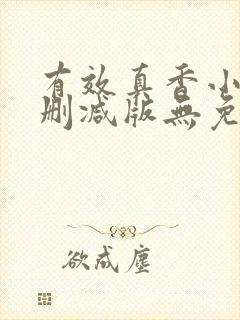 有效真香小
删减版無免
欲成塵